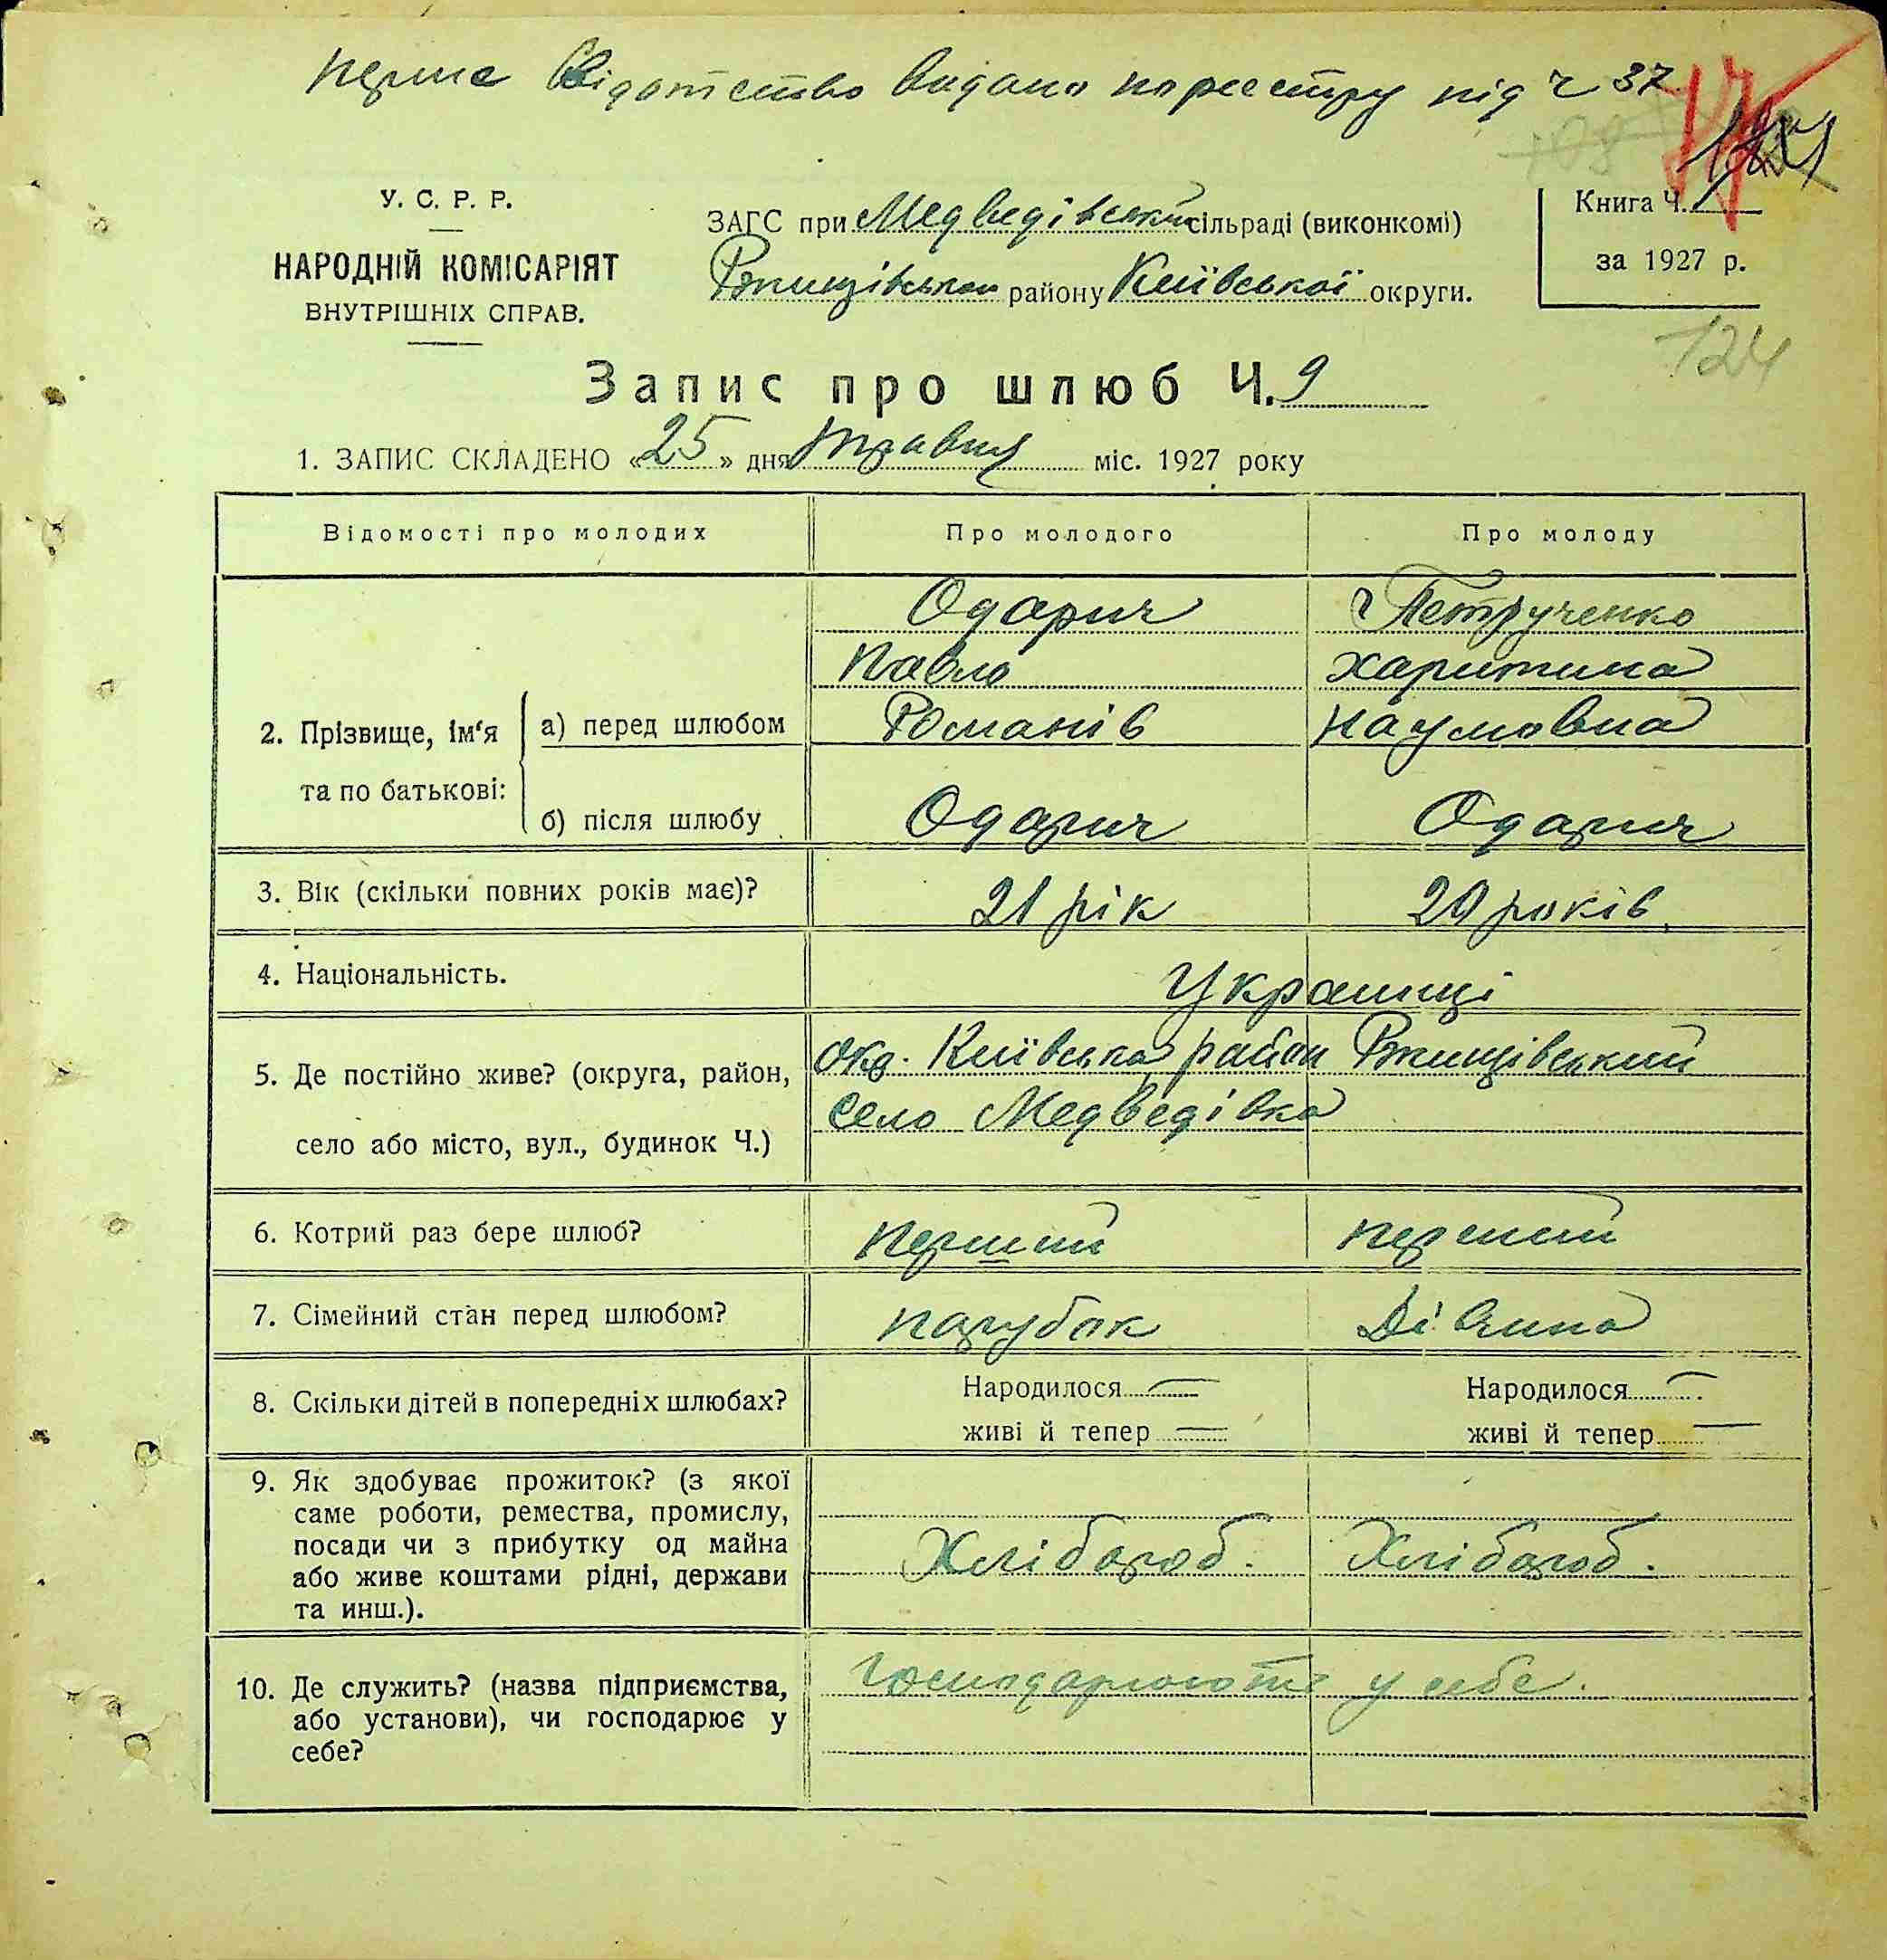 перше Свідотство видано по реестру під ч 37
124
У. С. Р. Р.
НАРОДНІЙ КОМІСАРІЯТ
ВНУТРІШНІХ СПРАВ.
ЗАГС при Медведівській сільраді (виконкомі)
Ржищівськом району Київської округи.
Книга Ч.
за 1927 р.
124
Запис про шлюб Ч. 9
1. ЗАПИС СКЛАДЕНО «25» дня травня міс. 1927 року
Відомості про молодих Про молодого Про молоду
2. Прізвище, ім'я та по батькові:
а) перед шлюбом
Одарич Петрученко
Павло Харитина
Романів Наумовна
б) після шлюбу Одарич Одарич
3. Вік (скільки повних років має)? 21 рік 20 років
4. Національність. Українці
5. Де постійно живе? (округа, район, окр. Київська район Ржищівський
село або місто, вул., будинок Ч.) село Медведівка
6. Котрий раз бере шлюб? перший перший
7. Сімейний стан перед шлюбом? парубок Дівчина
8. Скільки дітей в попередніх шлюбах? Народилося — Народилося —
живі й тепер — живі й тепер —
9. Як здобуває прожиток? (з якої
саме роботи, ремества, промислу,
посади чи з прибутку од майна
або живе коштами рідні, держави
та инш.).
Хлібороб. Хлібороб.
10. Де служить? (назва підприємства,
або установи), чи господарює у
себе?
Господарюють у себе.